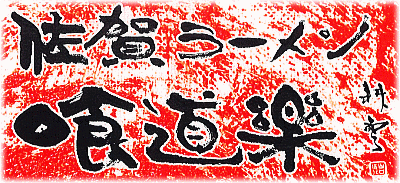 佐賀ラーメン
喰道楽